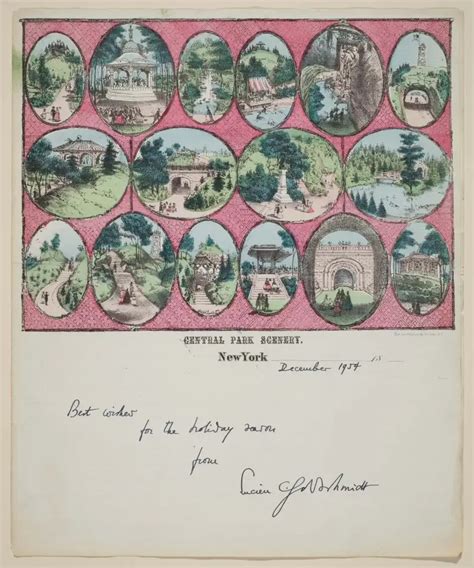 CENTRAL PARK SCENERY.
New York
December 1954 18
Best wishes
for the holiday season
from
Lucien Goldschmidt